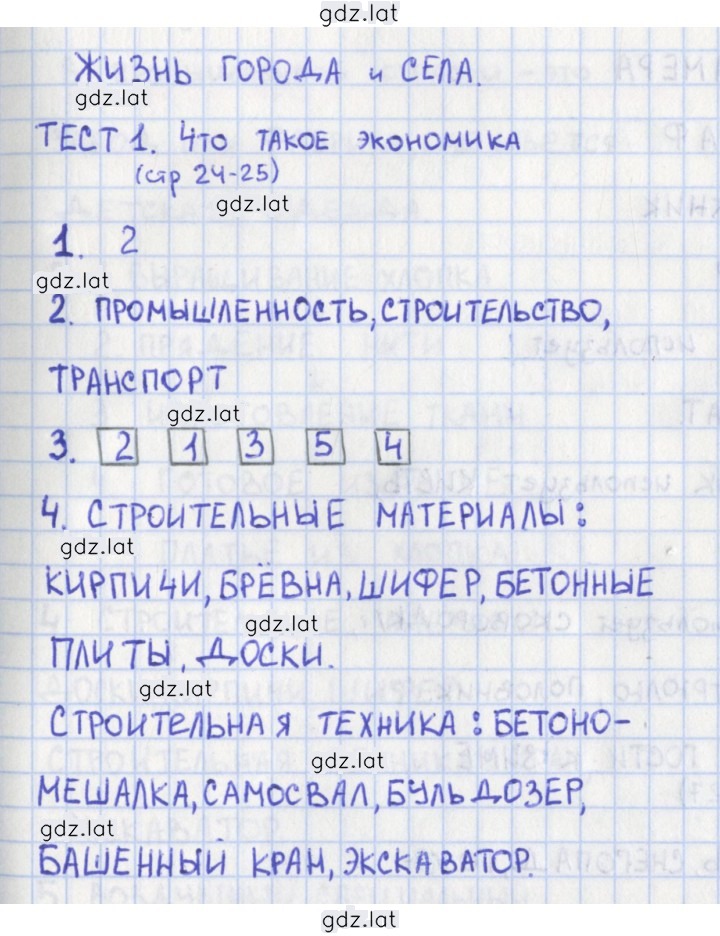 gdz.lat
ЖИЗНЬ ГОРОДА и СЕЛА.
gdz.lat
ТЕСТ 1. Что ТАКОЕ ЭКОНОМИКА
(стр 24-25)
gdz.lat
1. 2
gdz.lat
2. ПРОМЫШЛЕННОСТЬ, СТРОИТЕЛЬСТВО,
ТРАНСПОРТ
gdz.lat
3. 2 1 3 5 4
4. СТРОИТЕЛЬНЫЕ МАТЕРИАЛЫ:
gdz.lat
КИРПИЧИ, БРЁВНА, ШИФЕР, БЕТОННЫЕ
gdz.lat
ПЛИТЫ, ДОСКИ.
gdz.lat
СТРОИТЕЛЬНАЯ ТЕХНИКА: БЕТОНО-
gdz.lat
МЕШАЛКА, САМОСВАЛ, БУЛЬДОЗЕР,
gdz.lat
БАШЕННЫЙ КРАН, ЭКСКАВАТОР.
gdz.lat